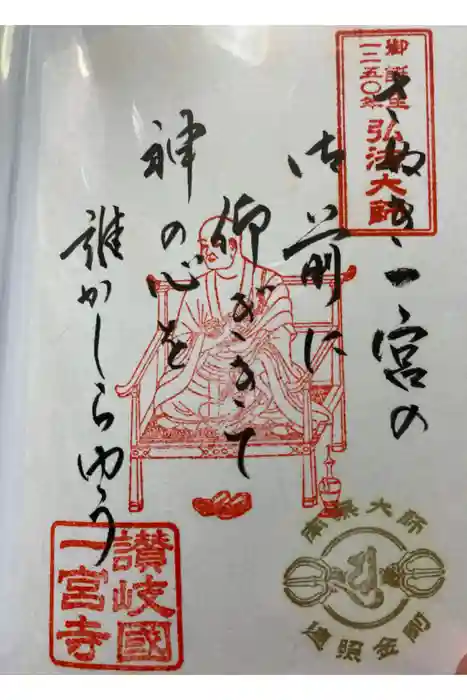 御誕生
一二五〇年
弘法大師
さぬき一宮の
御前に
仰ぎきて
神の心を
誰かしらゆう
南無大師
遍照金剛
讃岐國
一宮寺